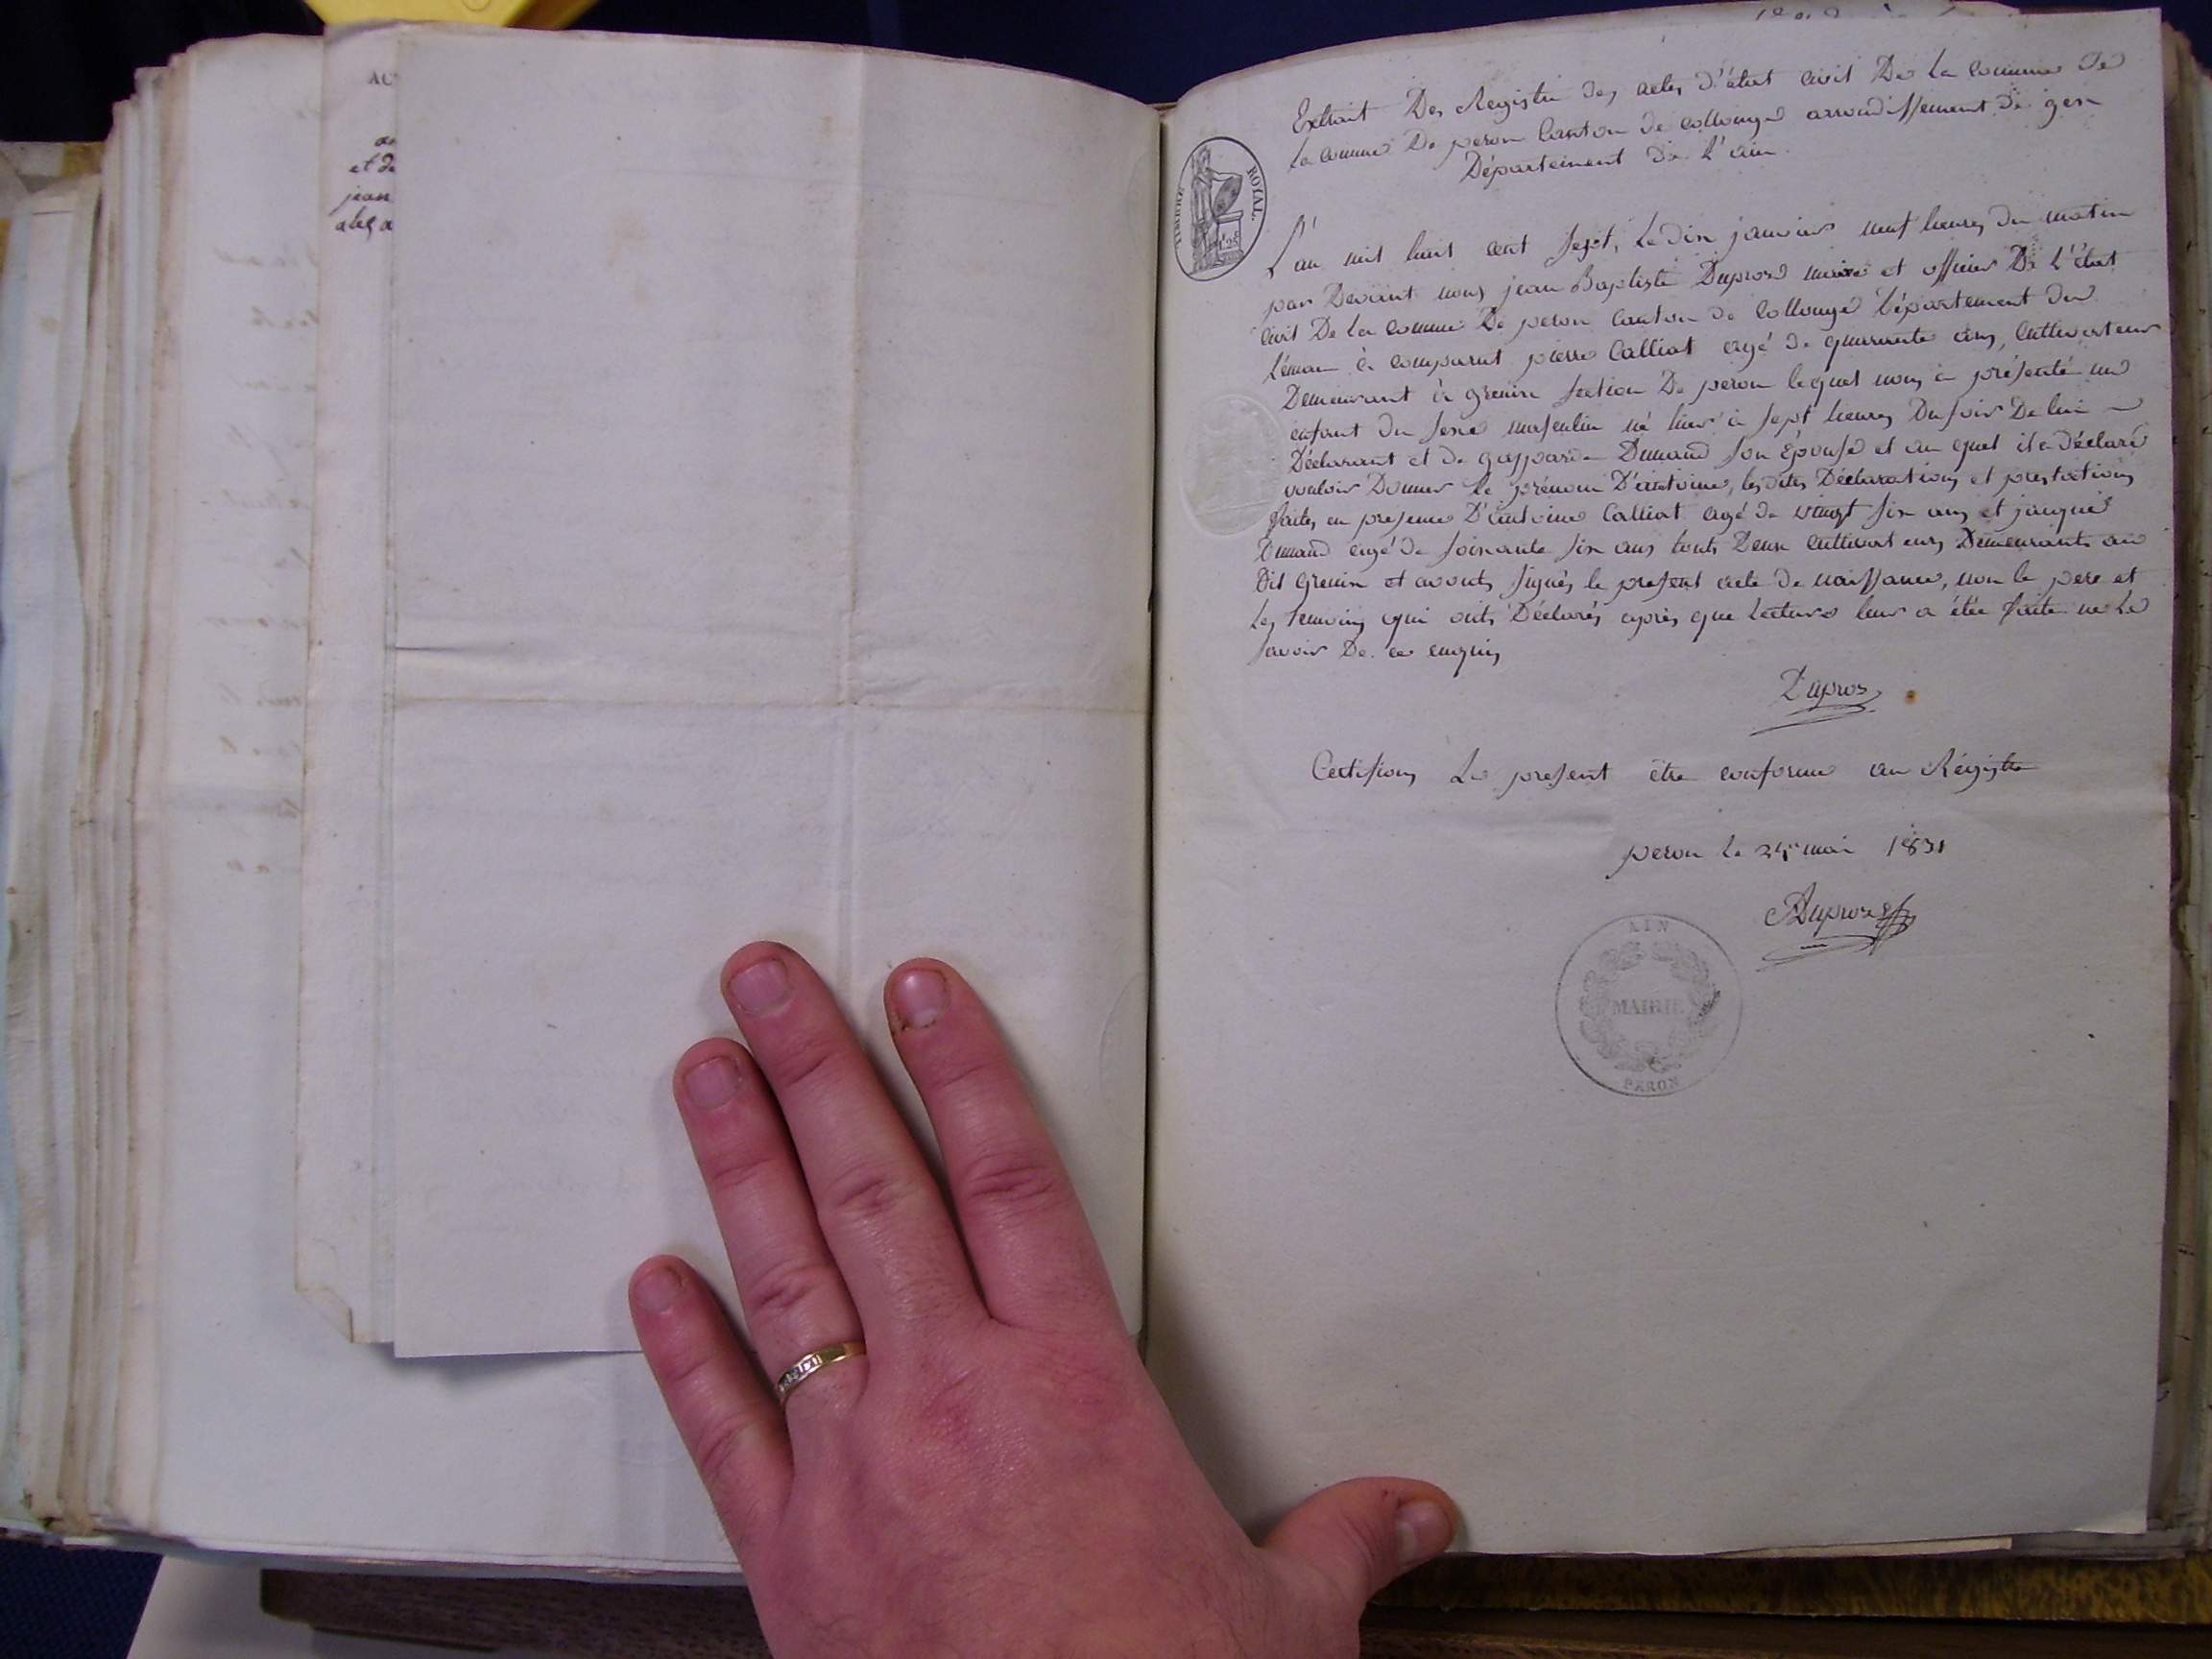 AC
an
et de
jean
alex a
TIMBRE ROYAL
Extrait Des Registre des actes d'état civil De La commune de
La commune De peron Canton de collonge arrondissement de gex
Département de L'ain.
L'an mil huit cent sept, Le dix janvier neuf heures du matin
par Devant nous jean Baptiste Duproz maire et officier De L'état
civil De La commune De peron canton de Collonge Département du
Léman à comparut pierre Calliat agé de quarante ans, Cultivateur
Demeurant à grenin section De peron lequel nous à présenté un
enfant du sexe masculin né hier à sept heures Du soir De lui
Déclarant et de gasparde Dunand son Épouse et au quel il a déclaré
vouloir Donner le prénom D'antoine, les dites Déclarations et prestations
faites en presence D'antoine Calliat agé de vingt six ans et jaque
Dunand agé de soixante six ans touts Deux Cultivateurs Demeurants au
Dit Grenin et avonts signés le present acte de naissance, non le pere et
Les temoins qui onts Déclarés après que Lecture leur a étée faite ne Le
savoir De ce enquis
Duproz
Certifions Le present être conforme au Régistre
peron le mai 1831
Duproz
AIN
MAIRIE
PERON